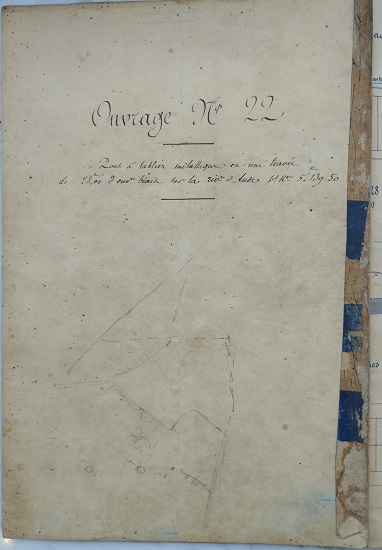 Ouvrage Nº 22
Pont à tablier métallique en une travée
de 28,00 d'ouvre biaise sur la rivre d'Aude Pt Kre 5k,139.50